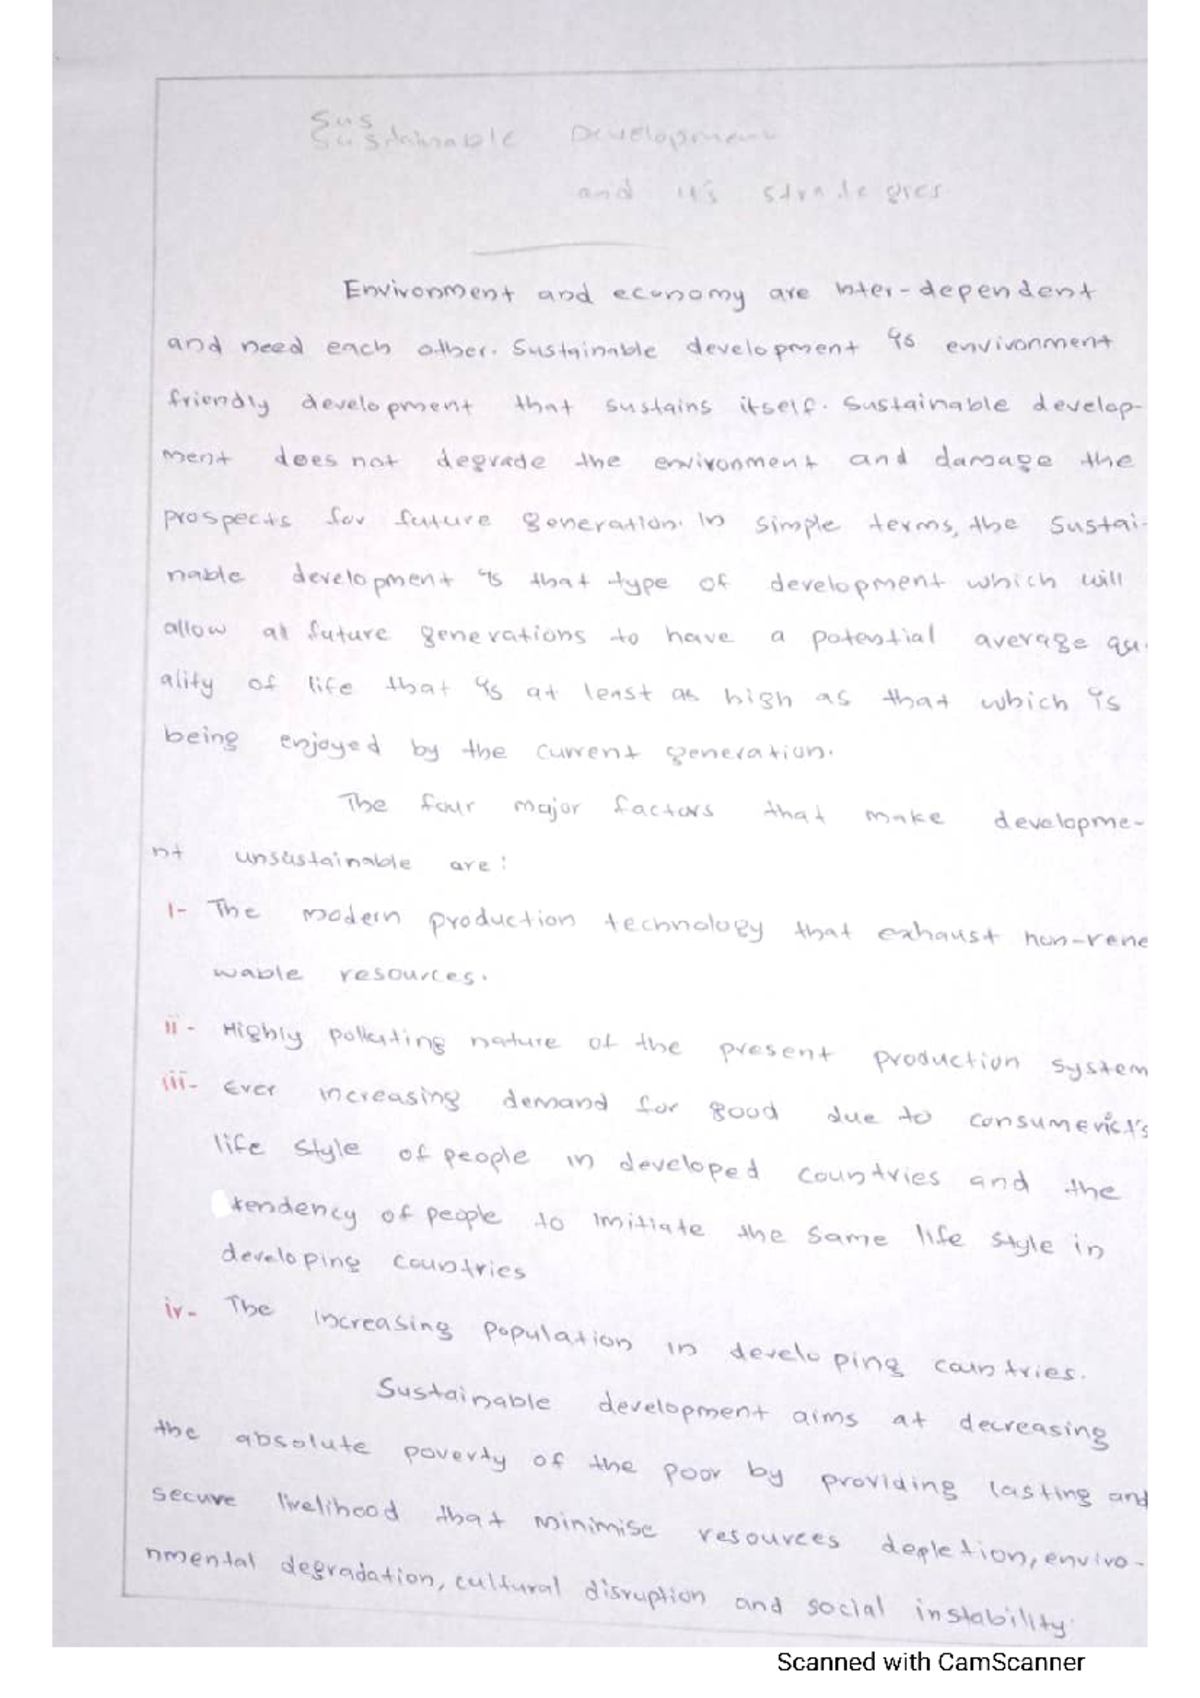 Sus
Sustainable Development
and it's strategies
Environment and economy are inter-dependent
and need each other. Sustainable development is environment
friendly development that sustains itself. Sustainable develop-
ment does not degrade the environment and damage the
prospects for future generation. In simple terms, the sustai-
nable development is that type of development which will
allow all future generations to have a potential average qu-
ality of life that is at least as high as that which is
being enjoyed by the current generation.
The four major factors that make developme-
nt unsustainable are:
i- The modern production technology that exhaust non-rene
wable resources.
ii- Highly polluting nature of the present production system
iii- Ever increasing demand for good due to
life style of people in developed countries and the
tendency of people to imitiate the same life style in
developing countries
iv- The increasing population in developing countries.
Sustainable development aims at decreasing
the absolute poverty of the poor by providing lasting and
secure livelihood that minimise resources depletion, enviro-
nmental degradation, cultural disruption and social instability.
Scanned with CamScanner